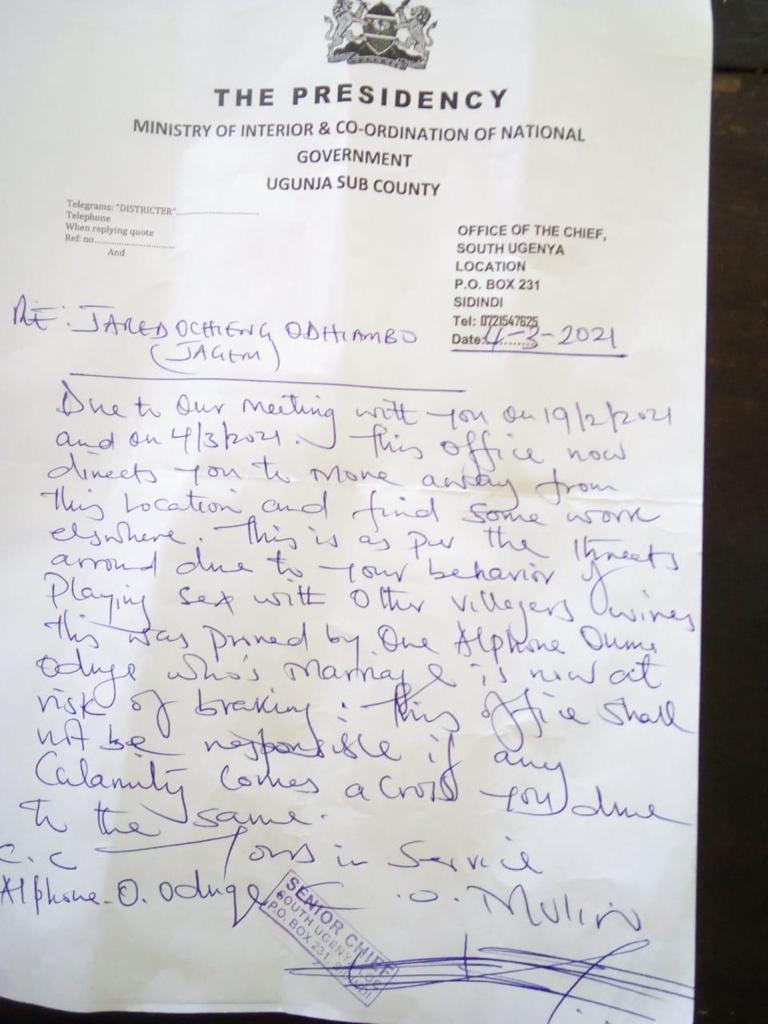 THE PRESIDENCY
MINISTRY OF INTERIOR & CO-ORDINATION OF NATIONAL
GOVERNMENT
UGUNJA SUB COUNTY
Telegrams: "DISTRICTER"
Telephone
When replying quote
Ref: no
And
OFFICE OF THE CHIEF,
SOUTH UGENYA
LOCATION
P.O. BOX 231
SIDINDI
Tel: 0721547625
Date: 4-3-2021
RE: JARED OCHIENG ODHIAMBO
(JAGEM)
Due to Our Meeting with you on 19/2/2021
and on 4/3/2021. This Office now
directs you to move away from
this Location and find some work
elswhere. This is as per the threats
arround due to your behavior of
Playing sex with Other villagers wives
this was proved by One Alphone Ouma
Oduge who's marriage is now at
risk of braking: this office shall
not be responsible if any
Calamity comes across you due
to the same.
C.C Yours in Service
Alphone. O. Oduge O.
SENIOR CHIEF
SOUTH UGENYA LOC
P.O. BOX 231, SIDINDI